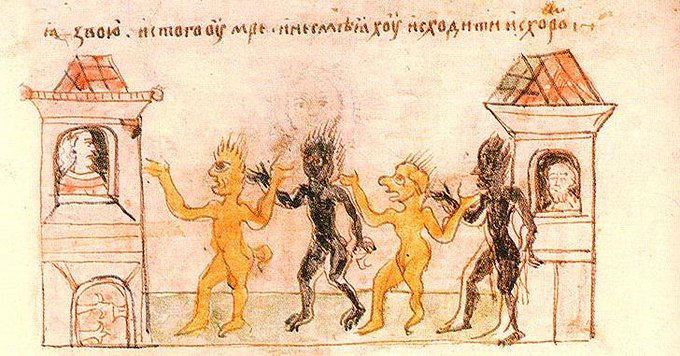 ꙗзвою. и стого оумре · и несмѣꙗхоу исходити исхоро